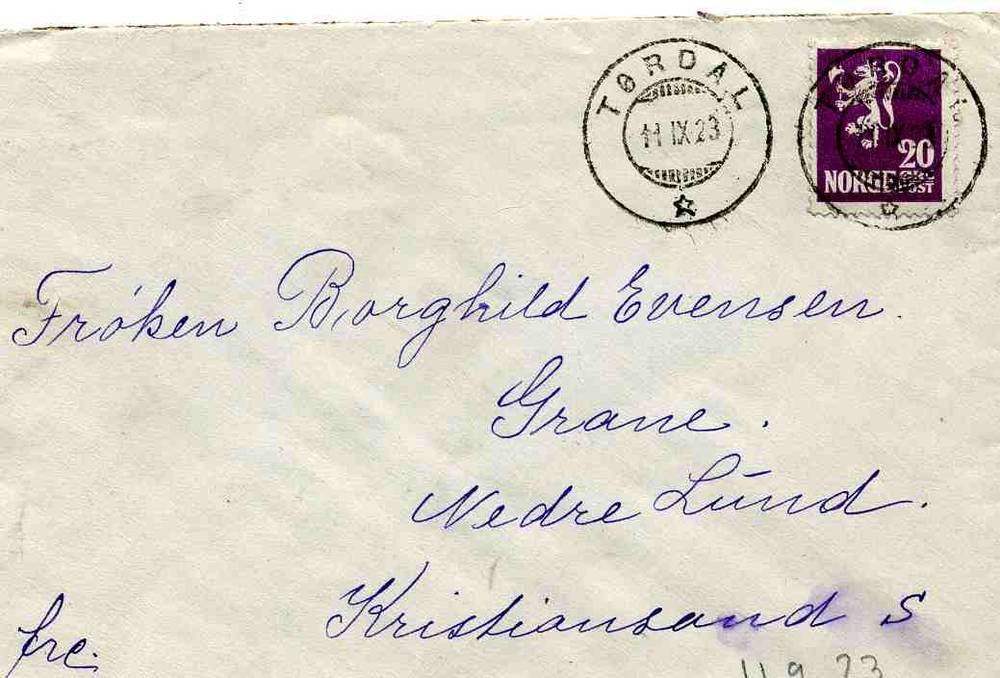 TØRDAL
11 IX 23
20
NORGE POST
Frøken Borghild Evensen.
Grane.
Nedre Lund.
Kristiansand S
frc.
11 9 23